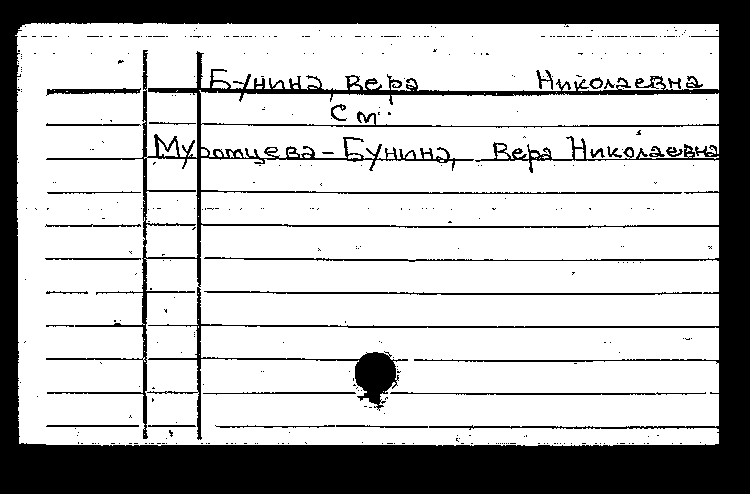 Бунина, Вера Николаевна
См.
Муромцева-Бунина, Вера Николаевна